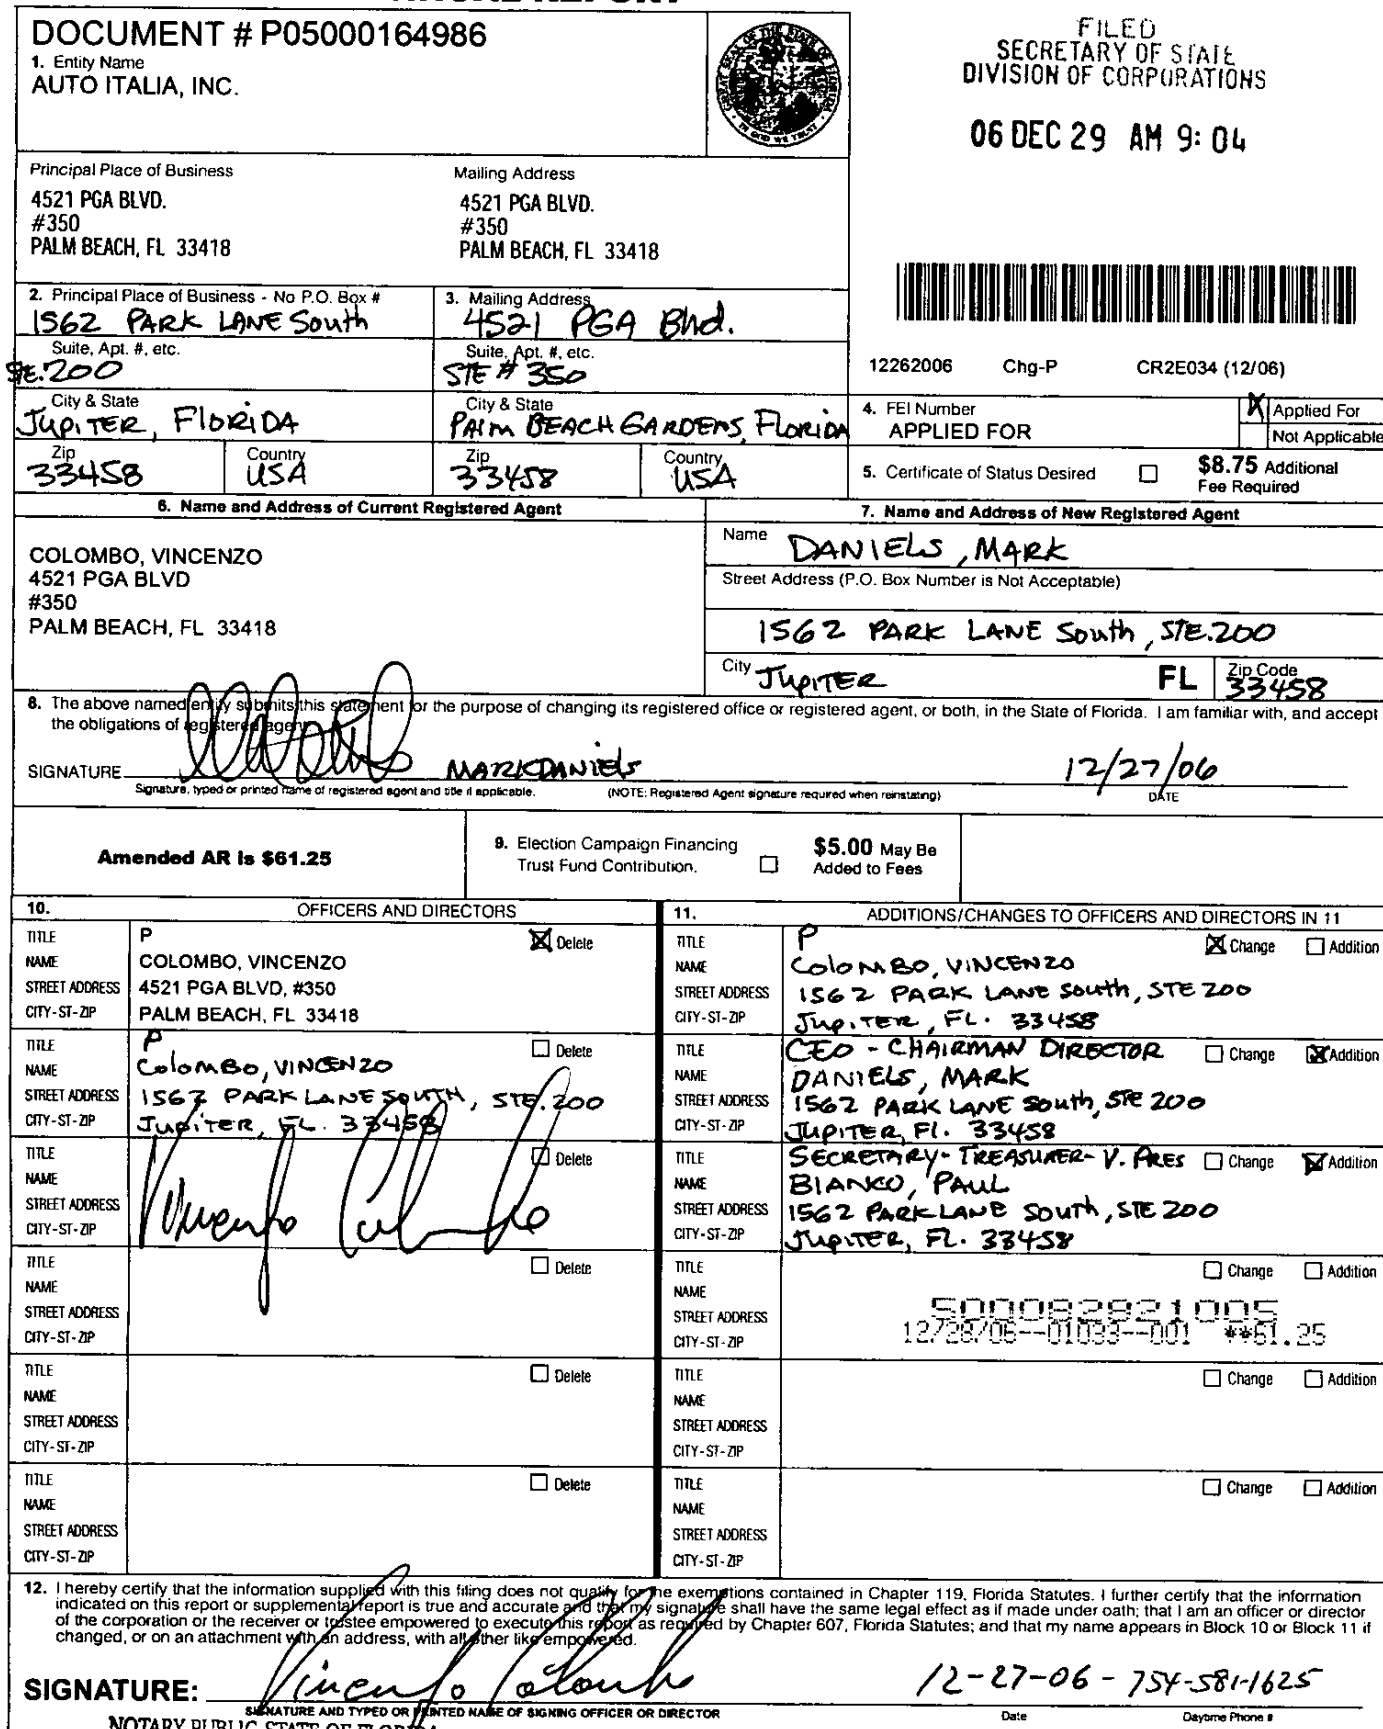 DOCUMENT # P05000164986
1. Entity Name
AUTO ITALIA, INC.
FILED
SECRETARY OF STATE
DIVISION OF CORPORATIONS
06 DEC 29 AM 9: 04
Principal Place of Business
4521 PGA BLVD.
#350
PALM BEACH, FL 33418
Mailing Address
4521 PGA BLVD.
#350
PALM BEACH, FL 33418
2. Principal Place of Business - No P.O. Box #
1562 PARK LANE South
Suite, Apt. #, etc.
STE.200
City & State
JUPITER, FLORIDA
Zip
33458
Country
USA
3. Mailing Address
4521 PGA Blvd.
Suite, Apt. #, etc.
STE # 350
City & State
PALM BEACH GARDENS, FLORIDA
Zip
33458
Country
USA
12262006 Chg-P CR2E034 (12/06)
4. FEI Number
APPLIED FOR
X Applied For
Not Applicable
5. Certificate of Status Desired
$8.75 Additional
Fee Required
6. Name and Address of Current Registered Agent
COLOMBO, VINCENZO
4521 PGA BLVD
#350
PALM BEACH, FL 33418
7. Name and Address of New Registered Agent
Name DANIELS, MARK
Street Address (P.O. Box Number is Not Acceptable)
1562 PARK LANE South, STE.200
City JUPITER FL Zip Code 33458
8. The above named entity submits this statement for the purpose of changing its registered office or registered agent, or both, in the State of Florida. I am familiar with, and accept
the obligations of registered agent.
SIGNATURE MARK DANIELS 12/27/06
Signature, typed or printed name of registered agent and title if applicable. (NOTE: Registered Agent signature required when reinstating) DATE
Amended AR is $61.25
9. Election Campaign Financing
Trust Fund Contribution.
$5.00 May Be
Added to Fees
10. OFFICERS AND DIRECTORS
TITLE P X Delete
NAME COLOMBO, VINCENZO
STREET ADDRESS 4521 PGA BLVD, #350
CITY-ST-ZIP PALM BEACH, FL 33418
TITLE P Delete
NAME COLOMBO, VINCENZO
STREET ADDRESS 1562 PARK LANE SOUTH, STE.200
CITY-ST-ZIP JUPITER, FL. 33458
TITLE Delete
NAME Vincenzo Colombo
STREET ADDRESS
CITY-ST-ZIP
TITLE Delete
NAME
STREET ADDRESS
CITY-ST-ZIP
TITLE Delete
NAME
STREET ADDRESS
CITY-ST-ZIP
TITLE Delete
NAME
STREET ADDRESS
CITY-ST-ZIP
11. ADDITIONS/CHANGES TO OFFICERS AND DIRECTORS IN 11
TITLE P X Change Addition
NAME COLOMBO, VINCENZO
STREET ADDRESS 1562 PARK LANE South, STE 200
CITY-ST-ZIP JUPITER, FL. 33458
TITLE CEO - CHAIRMAN DIRECTOR Change X Addition
NAME DANIELS, MARK
STREET ADDRESS 1562 PARK LANE South, STE 200
CITY-ST-ZIP JUPITER, Fl. 33458
TITLE SECRETARY- TREASURER- V. PRES Change X Addition
NAME BIANCO, PAUL
STREET ADDRESS 1562 PARK LANE SOUTH, STE 200
CITY-ST-ZIP JUPITER, FL. 33458
TITLE Change Addition
NAME
STREET ADDRESS 500082821005
CITY-ST-ZIP 12/28/06--01033--001 **61.25
TITLE Change Addition
NAME
STREET ADDRESS
CITY-ST-ZIP
TITLE Change Addition
NAME
STREET ADDRESS
CITY-ST-ZIP
12. I hereby certify that the information supplied with this filing does not qualify for the exemptions contained in Chapter 119, Florida Statutes. I further certify that the information
indicated on this report or supplemental report is true and accurate and that my signature shall have the same legal effect as if made under oath; that I am an officer or director
of the corporation or the receiver or trustee empowered to execute this report as required by Chapter 607, Florida Statutes; and that my name appears in Block 10 or Block 11 if
changed, or on an attachment with an address, with all other like empowered.
SIGNATURE: Vincenzo Colombo 12-27-06 - 754-581-1625
SIGNATURE AND TYPED OR PRINTED NAME OF SIGNING OFFICER OR DIRECTOR Date Daytime Phone #
NOTARY PUBLIC STATE OF FLORIDA